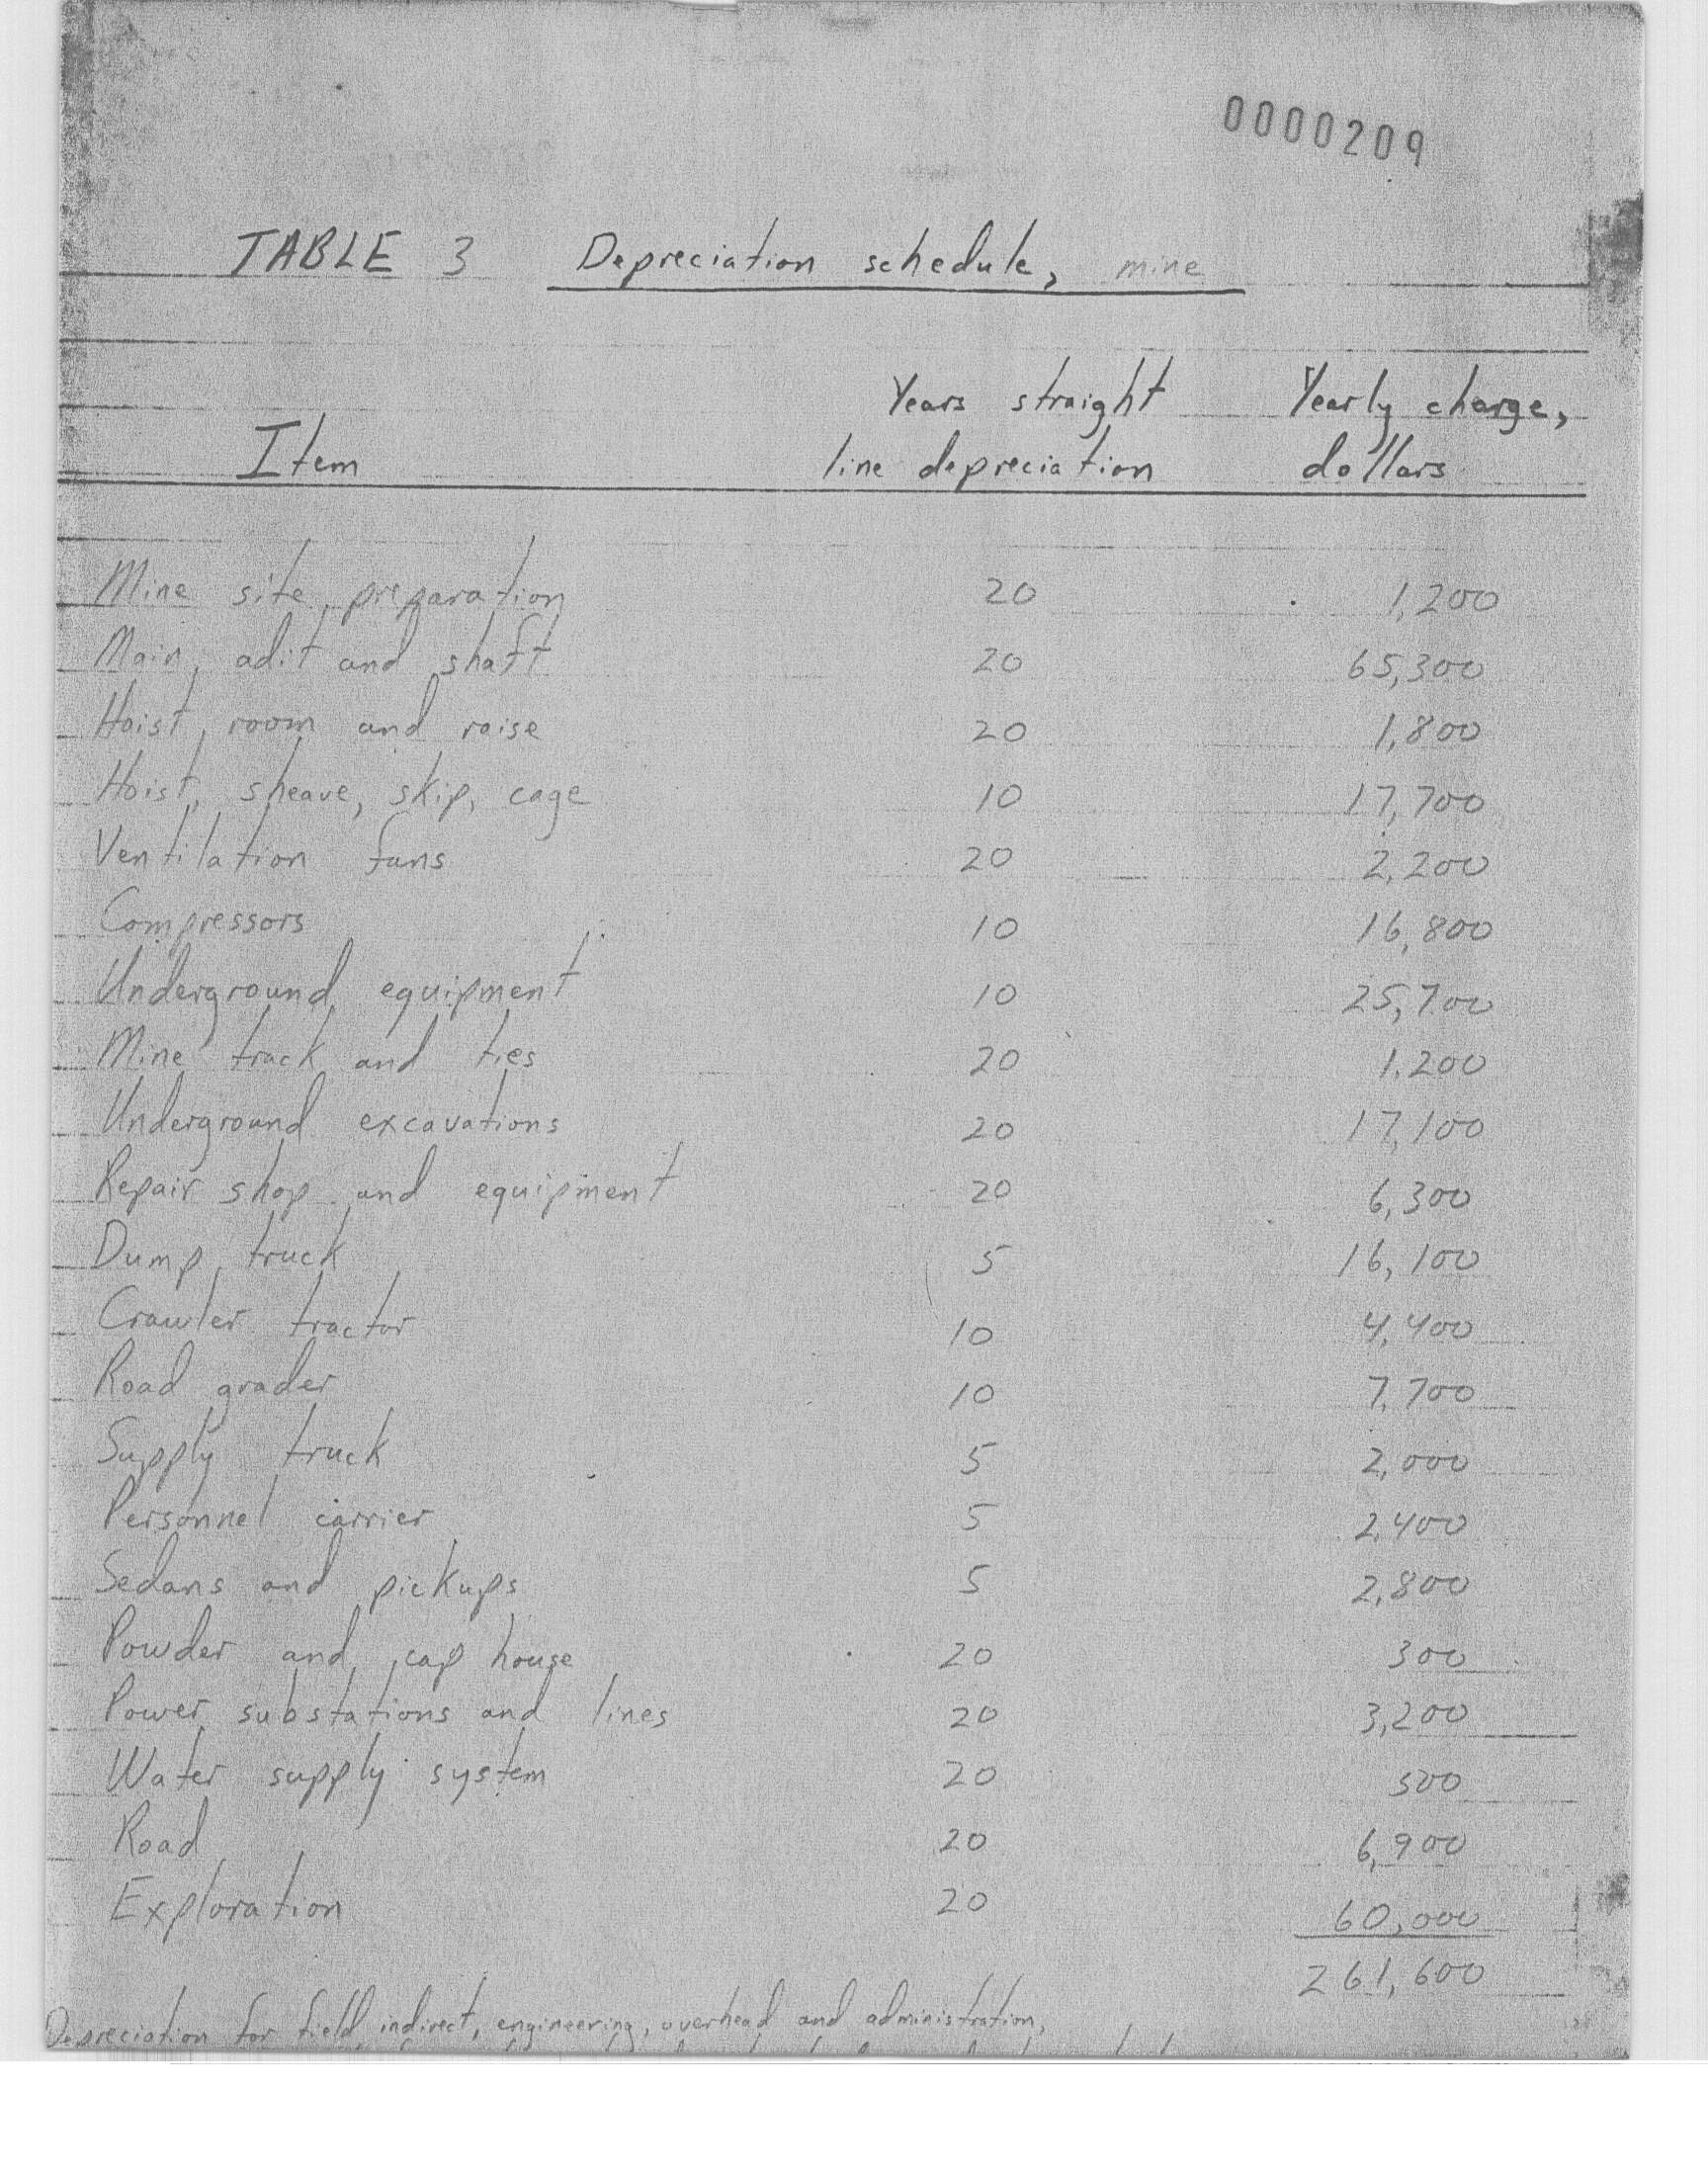 0000209
TABLE 3 Depreciation schedule, mine
Years straight Yearly charge,
Item line depreciation dollars
Mine site preparation 20 1,200
Main adit and shaft 20 65,300
Hoist room and raise 20 1,800
Hoist, sheave, skip, cage 10 17,700
Ventilation fans 20 2,200
Compressors 10 16,800
Underground equipment 10 25,700
Mine track and ties 20 1,200
Underground excavations 20 17,100
Repair shop and equipment 20 6,300
Dump truck 5 16,100
Crawler tractor 10 4,400
Road grader 10 7,700
Supply truck 5 2,000
Personnel carrier 5 2,400
Sedans and pickups 5 2,800
Powder and cap house 20 300
Power substations and lines 20 3,200
Water supply system 20 500
Road 20 6,900
Exploration 20 60,000
261,600
Depreciation for field indirect, engineering, overhead and administration,